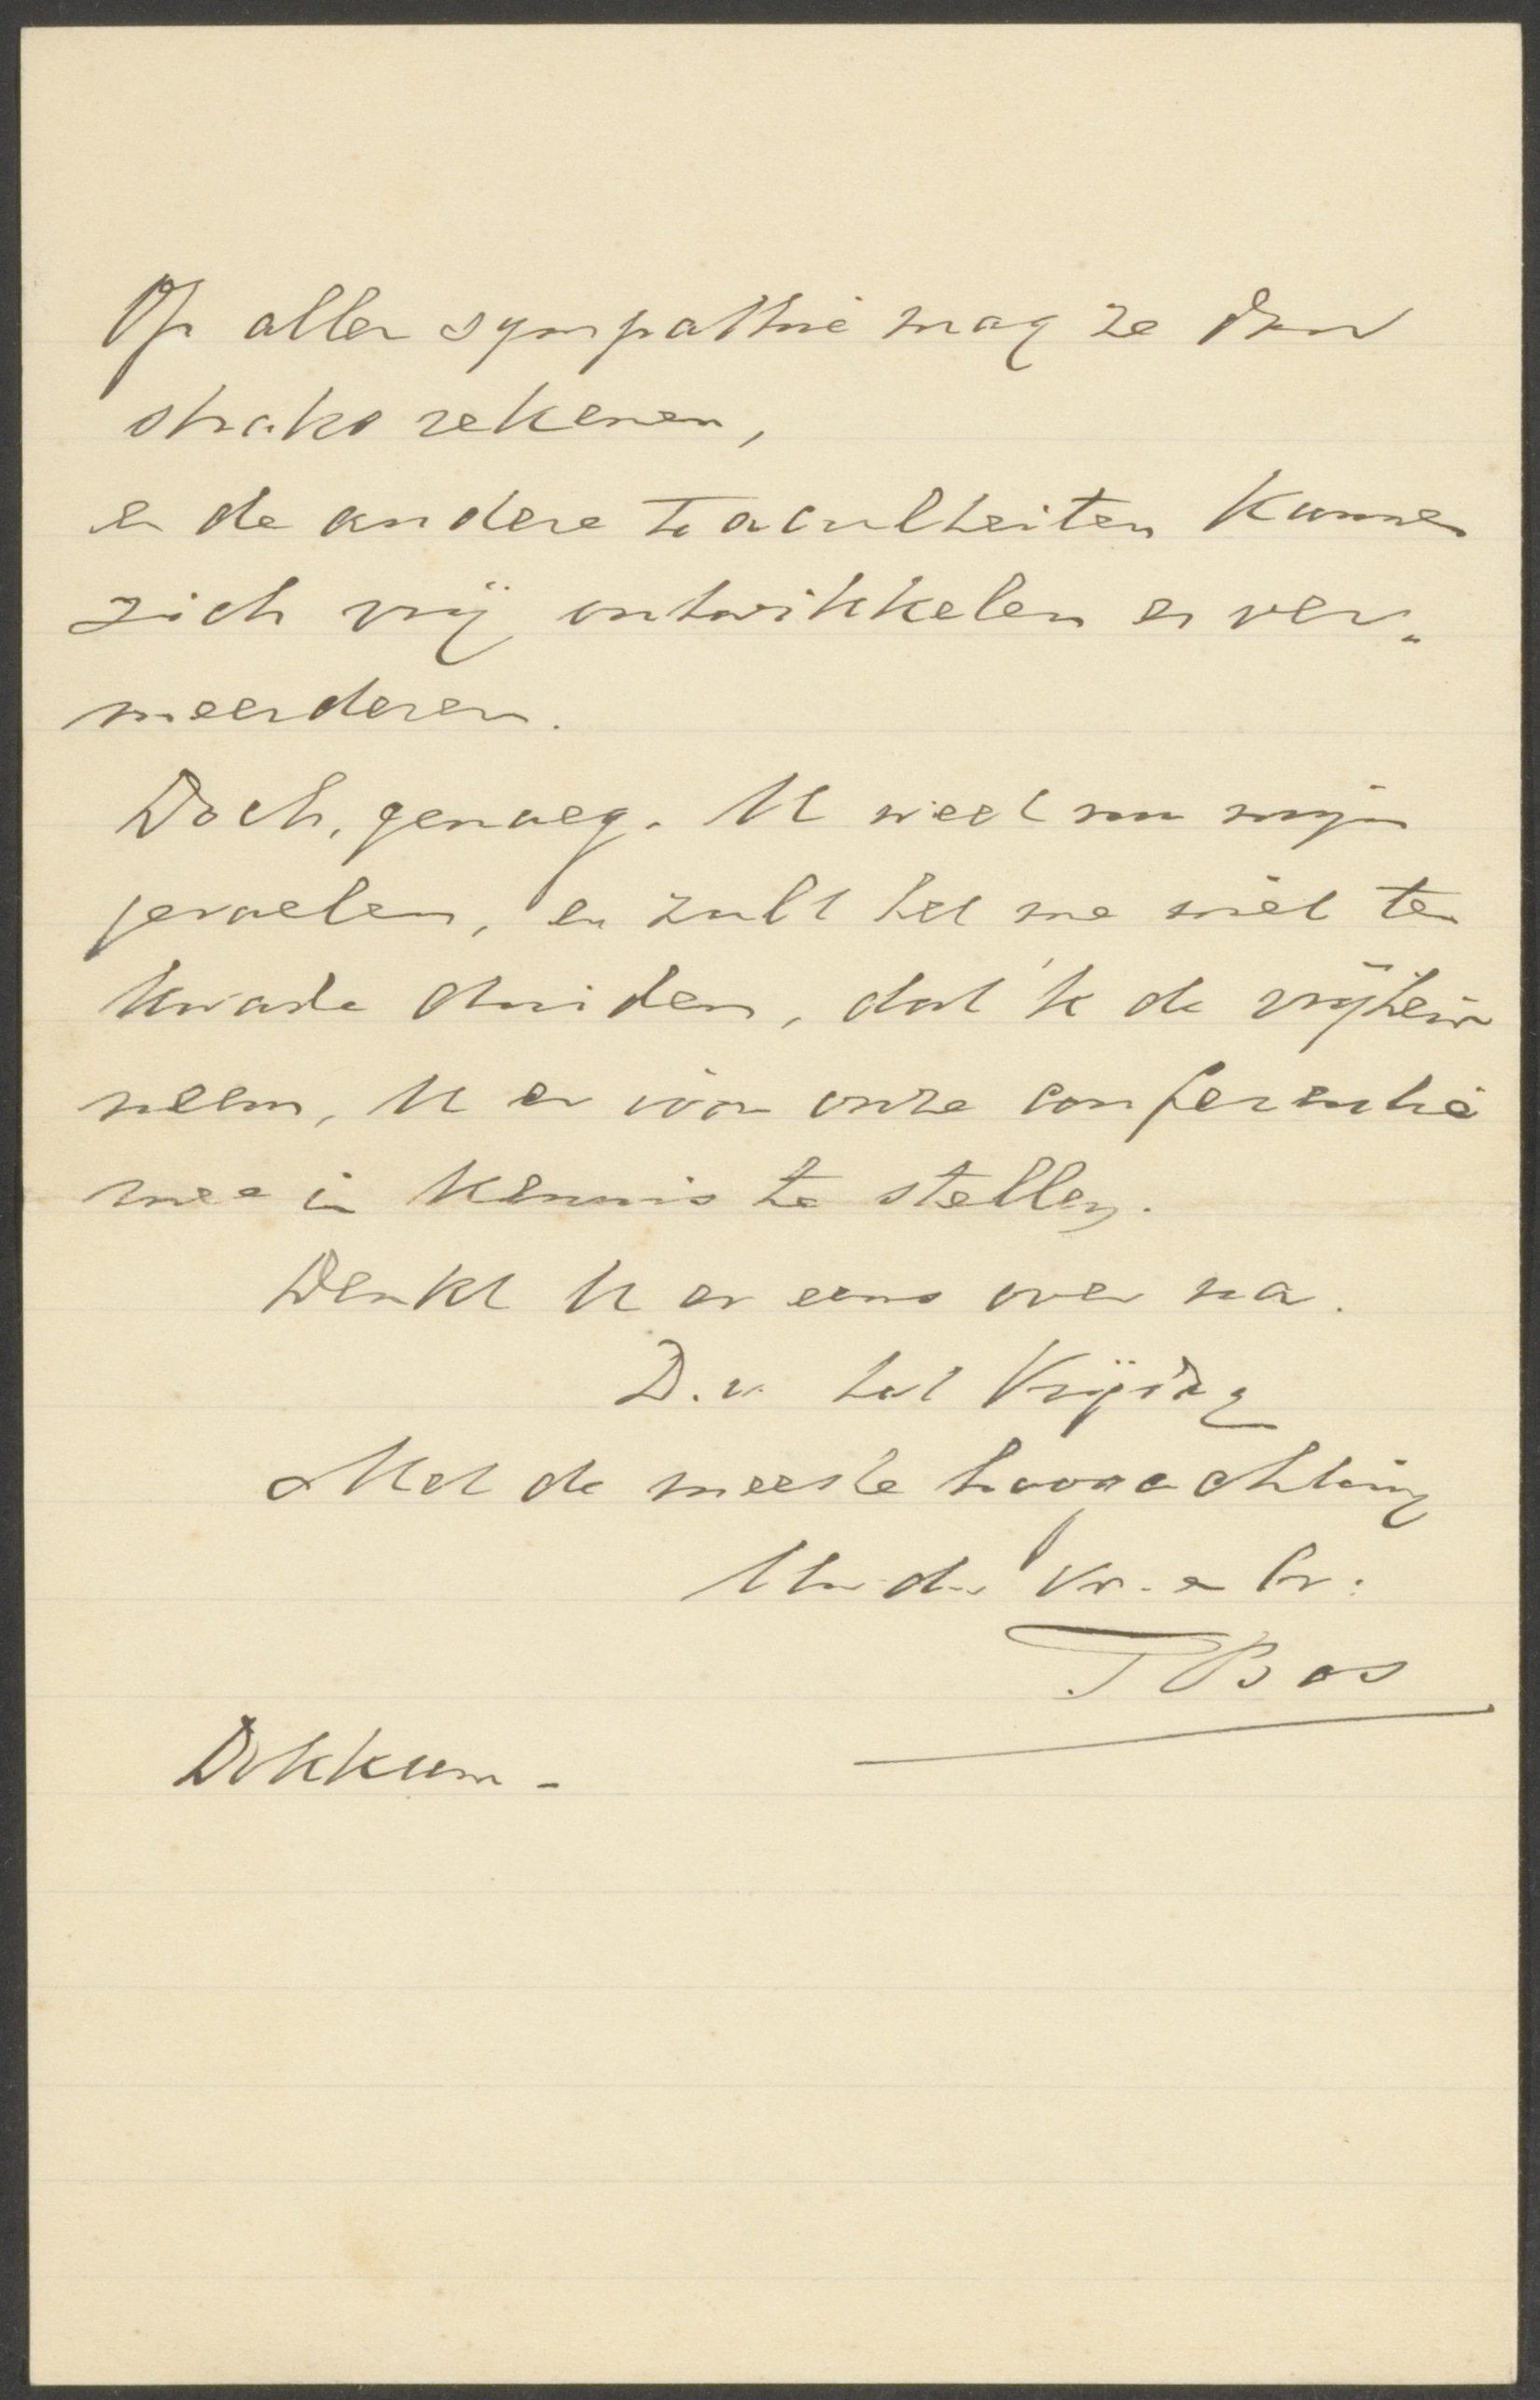 Op aller sympathie mag ze dan
straks rekenen,
en de andere Faculteiten kunnen
zich vrij ontwikkelen en ver„
meerderen.
Doch, genoeg. U weet nu mijn
gevoelen, en zult het me niet ten
kwade duiden, dat 'k de vrijheid
neem, U er vóor onze conferentie
mee in kennis te stellen.
Denkt U er eens over na.
D.v. tot Vrijdag
Met de meeste hoogachting
Uw dw. Vr. en br.
T Bos
Dokkum -